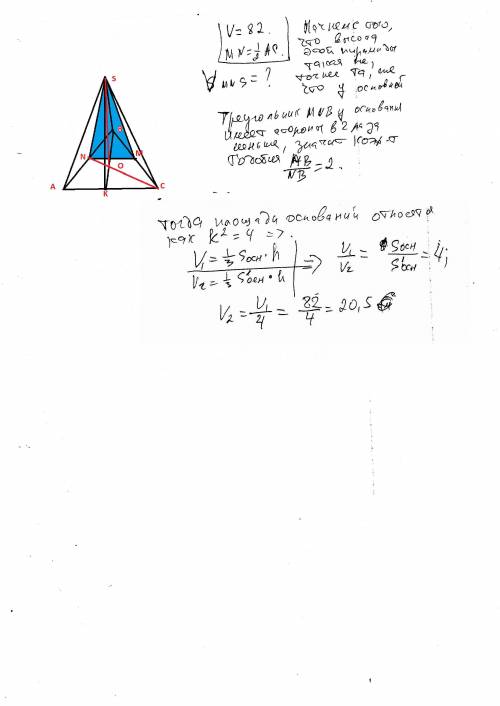 V = 82.
MN = 1/2 AC.
V MNS = ?
Начнем с того,
что высота
этой пирамиды
такая же,
точнее та, же
что у основной
Треугольник MNB у основания
имеет стороны в 2 раза
меньше, значит коэф-т
подобия AB/NB = 2.
S
B
N
M
O
A
K
C
тогда площади оснований относятся
как k² = 4 =>.
V₁ = 1/3 Sосн · h
V₂ = 1/3 S¹осн · h
=> V₁/V₂ = Sосн/S¹осн = 4;
V₂ = V₁/4 = 82/4 = 20,5